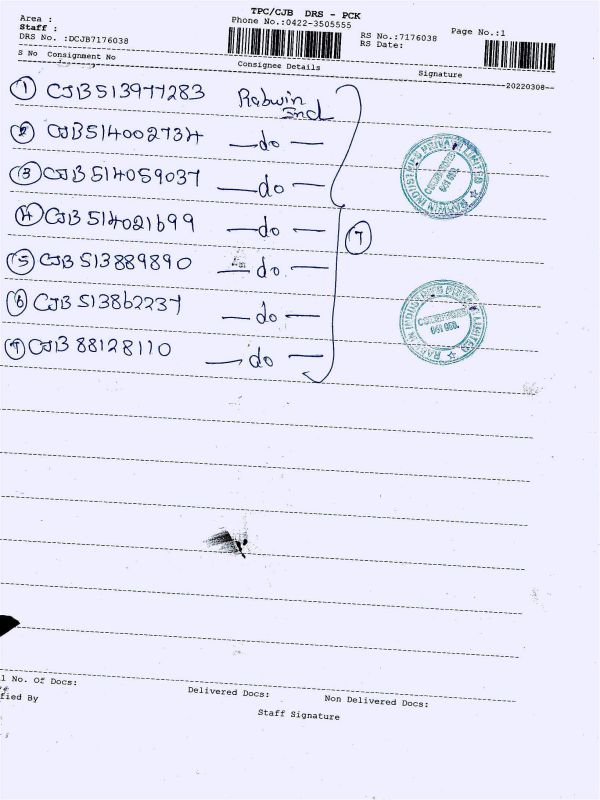 TPC/CJB DRS - PCK
Area :
Staff :
Phone No.:0422-3505555
RS No.:7176038 Page No.:1
DRS No. :DCJB7176038
RS Date:
S No Consignment No Consignee Details Signature --20220308--
1 CJB513977283 Rabwin Ind
2 CJB514002734 —do—
3 CJB514059037 —do—
4 CJB514021699 —do— 7
5 CJB513889890 —do—
6 CJB513862237 —do—
7 CJB88128110 —do—
RABWIN INDUSTRIES PRIVATE LIMITED
COIMBATORE
641 050.
RABWIN INDUSTRIES PRIVATE LIMITED
COIMBATORE
641 050.
l No. Of Docs: Delivered Docs: Non Delivered Docs:
fied By Staff Signature